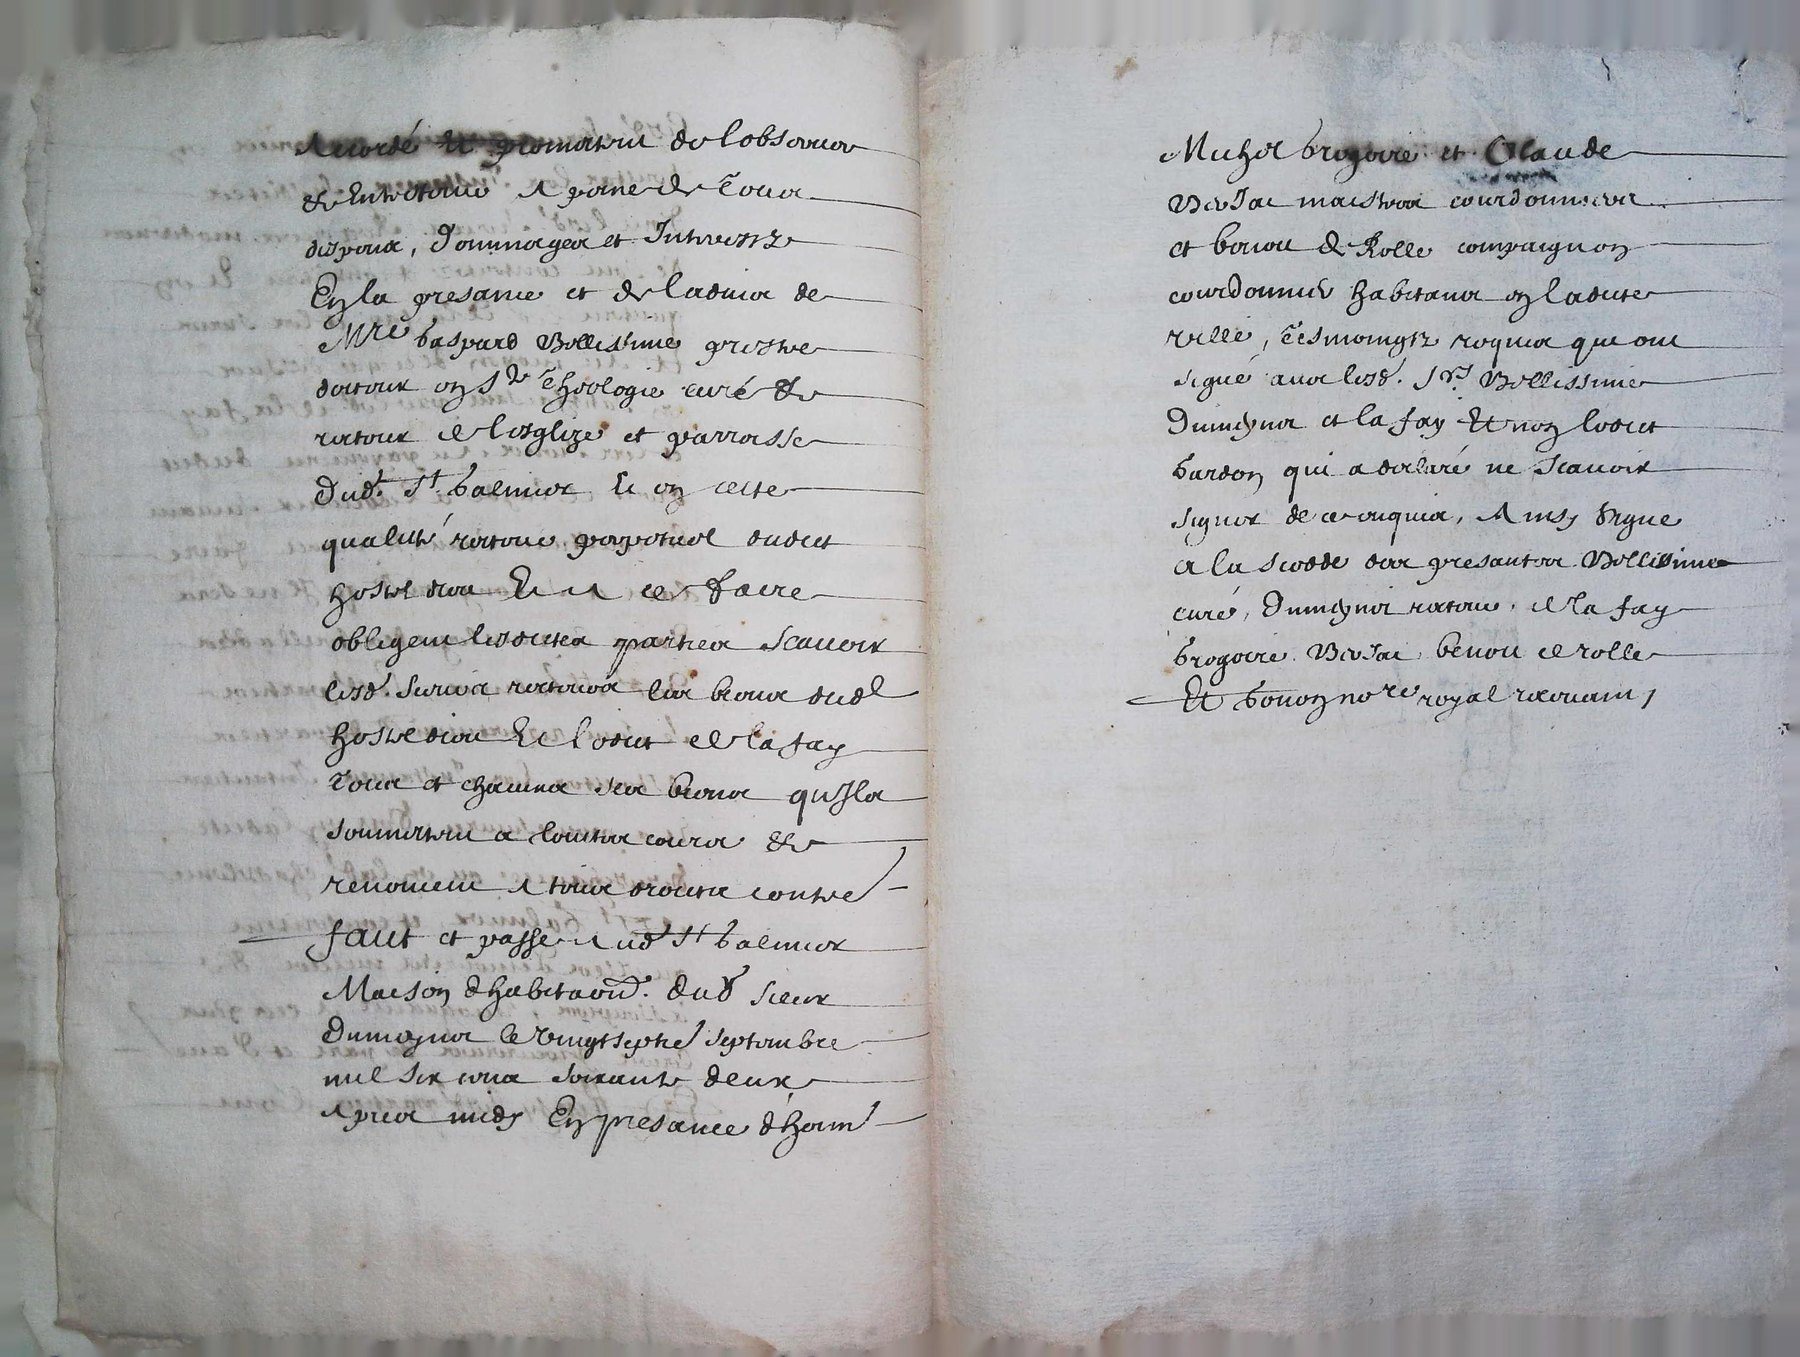 Accordé Et promettent de lobserver
& Entretenir A peine de Tous
despens, Dommages et Interestz
En la presance et de ladvis de
Mre Gaspard Bellissime prestre
docteur en Ste Theologie curé &
recteur de lesglize et parroisse
Dud. St Galmier Et en ceste
qualité recteur perpetuel dudict
hostel dieu Et A ce faire
obligent lesdites parties Scavoir
lesd. Sieurs recteurs les biens dud
hostel dieu Et ledict de la fay
Tous et chacuns ses biens quils
soumettent a toutes cours &
renoncent A tous droicts contre
faict et passé Aud St Galmier
Maison dhabitaon. Dud sieur
Dumeynes le vingtseptie septembre
mil six cens soixante deux
Apres midy En presance dhonn
Michel Gregoire et Claude
Versac maistres courdonniers
et benoit de Rolle compaignon
courdonnier habitans en ladite
ville, Tesmoingtz requis qui ont
signé avec lesd. Srs Bellissime
Dumeynes et la fay Et non ledict
Gardon qui a declaré ne scavoir
signer de ce enquis, Ainsy signe
a la scedde des presantes Bellissime
curé, Dumeynes recteur, de la fay
Gregoire. Versac, benoit de rolle
Et Gonon nore royal recevant /